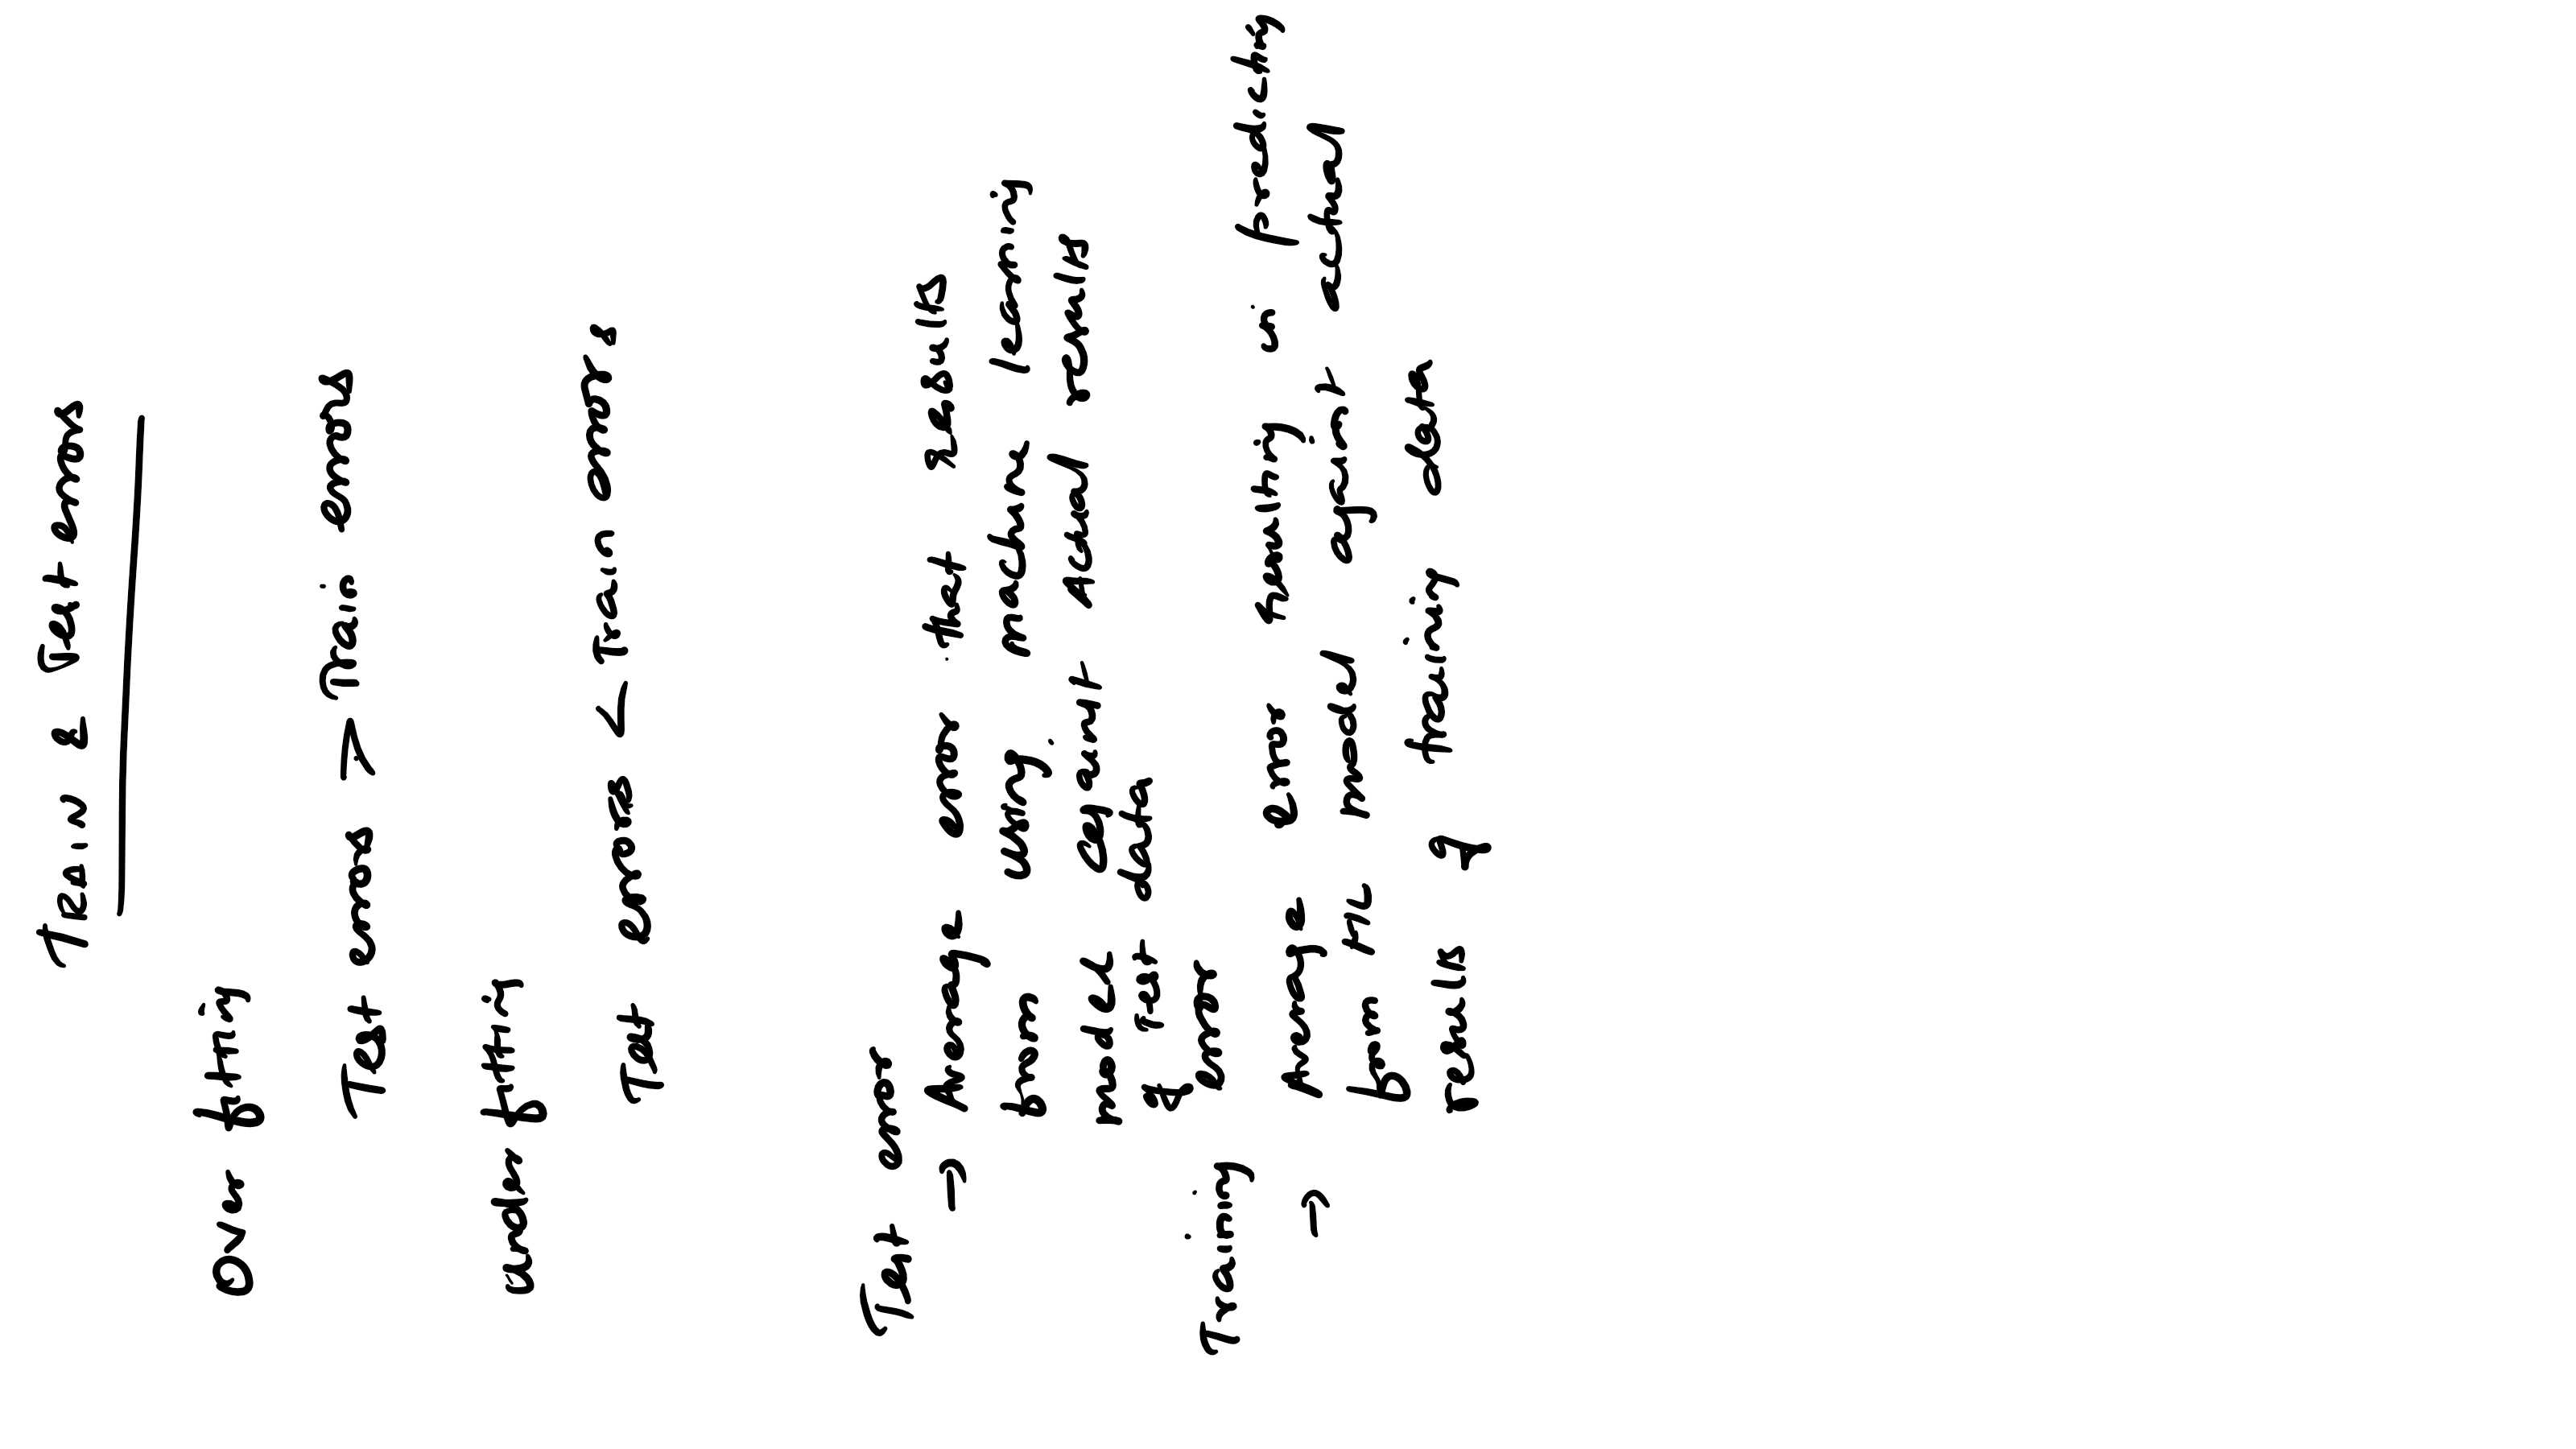 TRAIN & Test errors
Over fitting
Test errors > Train errors
Under fitting
Test errors < Train errors
Test error
⇒ Average error that results
from using machine learning
model against Actual results
of Test data
Training error
⇒ Average error resulting in predicting
from ML model against actual
results of training data